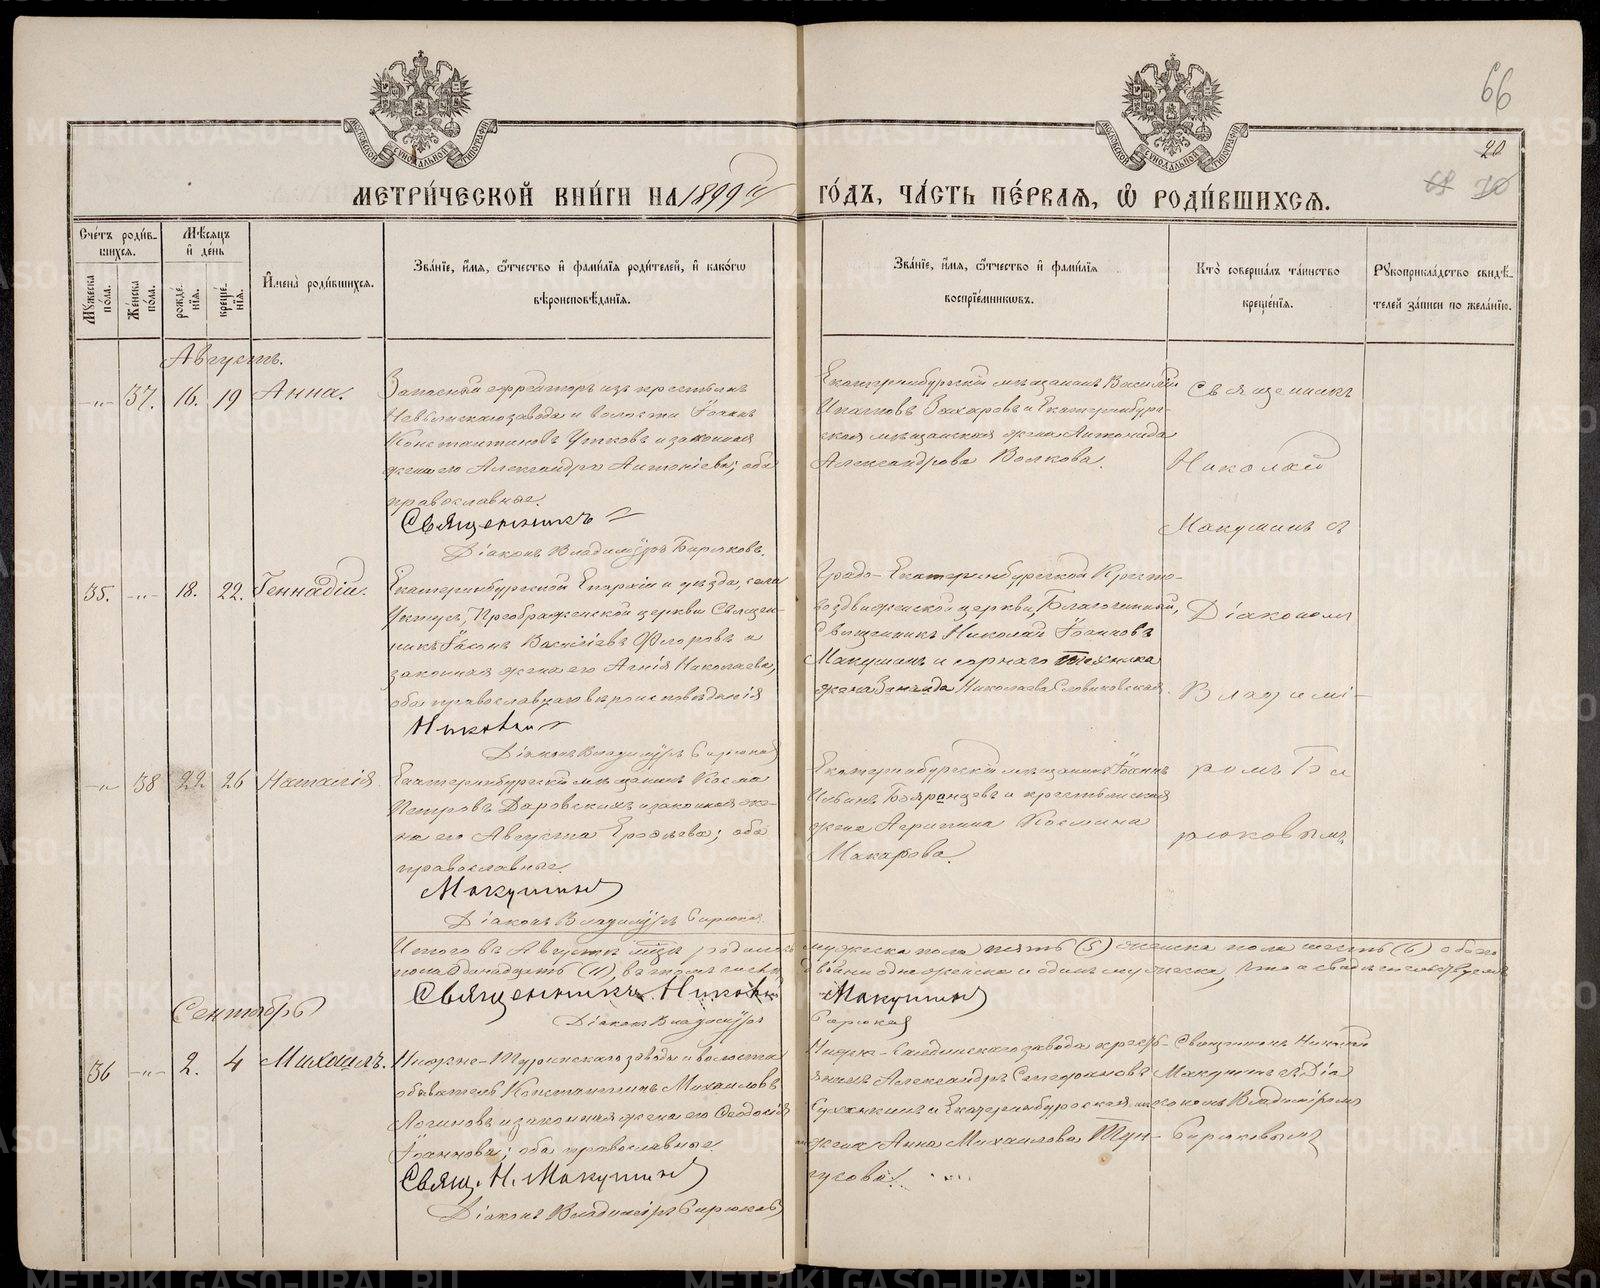 66
20
МЕТРИ́ЧЕСКОЙ КНИ́ГИ НА 1899й ГО́ДЪ, ЧА́СТЬ ПЕ́РВАѦ, Ѡ҆ РОДИ́ВШИХСѦ.
МОСКОВСКОЙ СѴНОДАЛЬНОЙ ТИПОГРАФІИ
МОСКОВСКОЙ СѴНОДАЛЬНОЙ ТИПОГРАФІИ
Сче́тъ роди́вшихсѧ.
Мꙋ́жеска по́ла.
Же́нска по́ла.
Мѣ́сѧцъ и҆ де́нь
рожде́нїѧ.
креще́нїѧ.
И҆мена̀ роди́вшихсѧ.
Зва́нїе, и҆́мѧ, ѻ҆́тчество и҆ фами́лїѧ роди́телей, и҆ како́гѡ вѣроисповѣ́данїѧ.
Зва́нїе, и҆́мѧ, ѻ҆́тчество и҆ фами́лїѧ воспрїе́мникѡвъ.
Кто̀ соверша́лъ та́инство креще́нїѧ.
Рꙋкоприкла́дство свидѣ́телей за́писи по жела́нїю.
Августъ.
-"- 37. 16. 19 Анна.
Запасный ефрейторъ изъ крестьянъ
Невьянскаго завода и волости Іоаннъ
Константиновъ Утковъ и законная
жена его Александра Антоніева; оба
православные.
Священникъ
Діаконъ Владимиръ Бирюковъ.
Екатеринбургскій мѣщанинъ Василій
Ипатовъ Захаровъ и Екатеринбург-
ская мѣщанская жена Антонида
Александрова Волкова.
Священникъ
Николай
Макушинъ съ
35. -"- 18. 22. Геннадій.
Екатеринбургской Епархіи и уѣзда, села
Уктуса, Преображенской церкви Священ-
никъ Іаковъ Васильевъ Флоровъ и
законная жена его Агнія Николаева,
оба православнаго вѣроисповѣданія
Николай
Діаконъ Владимиръ Бирюковъ
Градо-Екатеринбургской Кресто-
воздвиженской церкви, Благочинный,
Священникъ Николай Іоанновъ
Макушинъ и горнаго техника
жена Зинаида Николаева Словиковская.
Діакономъ
Владимі-
-"- 38 22. 26 Наталія
Екатеринбургскій мѣщанинъ Косма
Петровъ Даровскихъ и законная же-
на его Августа Ероѳеева; оба
православные.
Макушинъ
Діаконъ Владимиръ Бирюковъ
Екатеринбургскій мѣщанинъ Іоаннъ
жена Агрипина Космина
Макарова.
ромъ Би
рюковымъ
Итого въ Августѣ мцѣ родилось мужеска пола пять (5) женска пола шесть (6) обоего
пола одинадцать (11), въ томъ числѣ двойни одна женска и одинъ мужеска, что и свидѣтельствуемъ
Священникъ Николай Макушинъ
Діаконъ Владимиръ Бирюковъ
Сентябрь
36 -"- 2. 4 Михаилъ.
Нижне-Туринскаго завода и волости
обыватель Константинъ Михаиловъ
Логиновъ и законная жена его Ѳеодосія
Іоаннова; оба православные
Свящ. Н. Макушинъ
Діаконъ Владимиръ Бирюковъ
Нижне-Салдинскаго завода крестья-
янинъ Александръ Стефановъ
Суханкинъ и Екатеринбургская
жена Анна Михаилова Тун-
гусова.
Священникъ Николай
Макушинъ съ Діа
кономъ Владиміромъ
Бирюковымъ